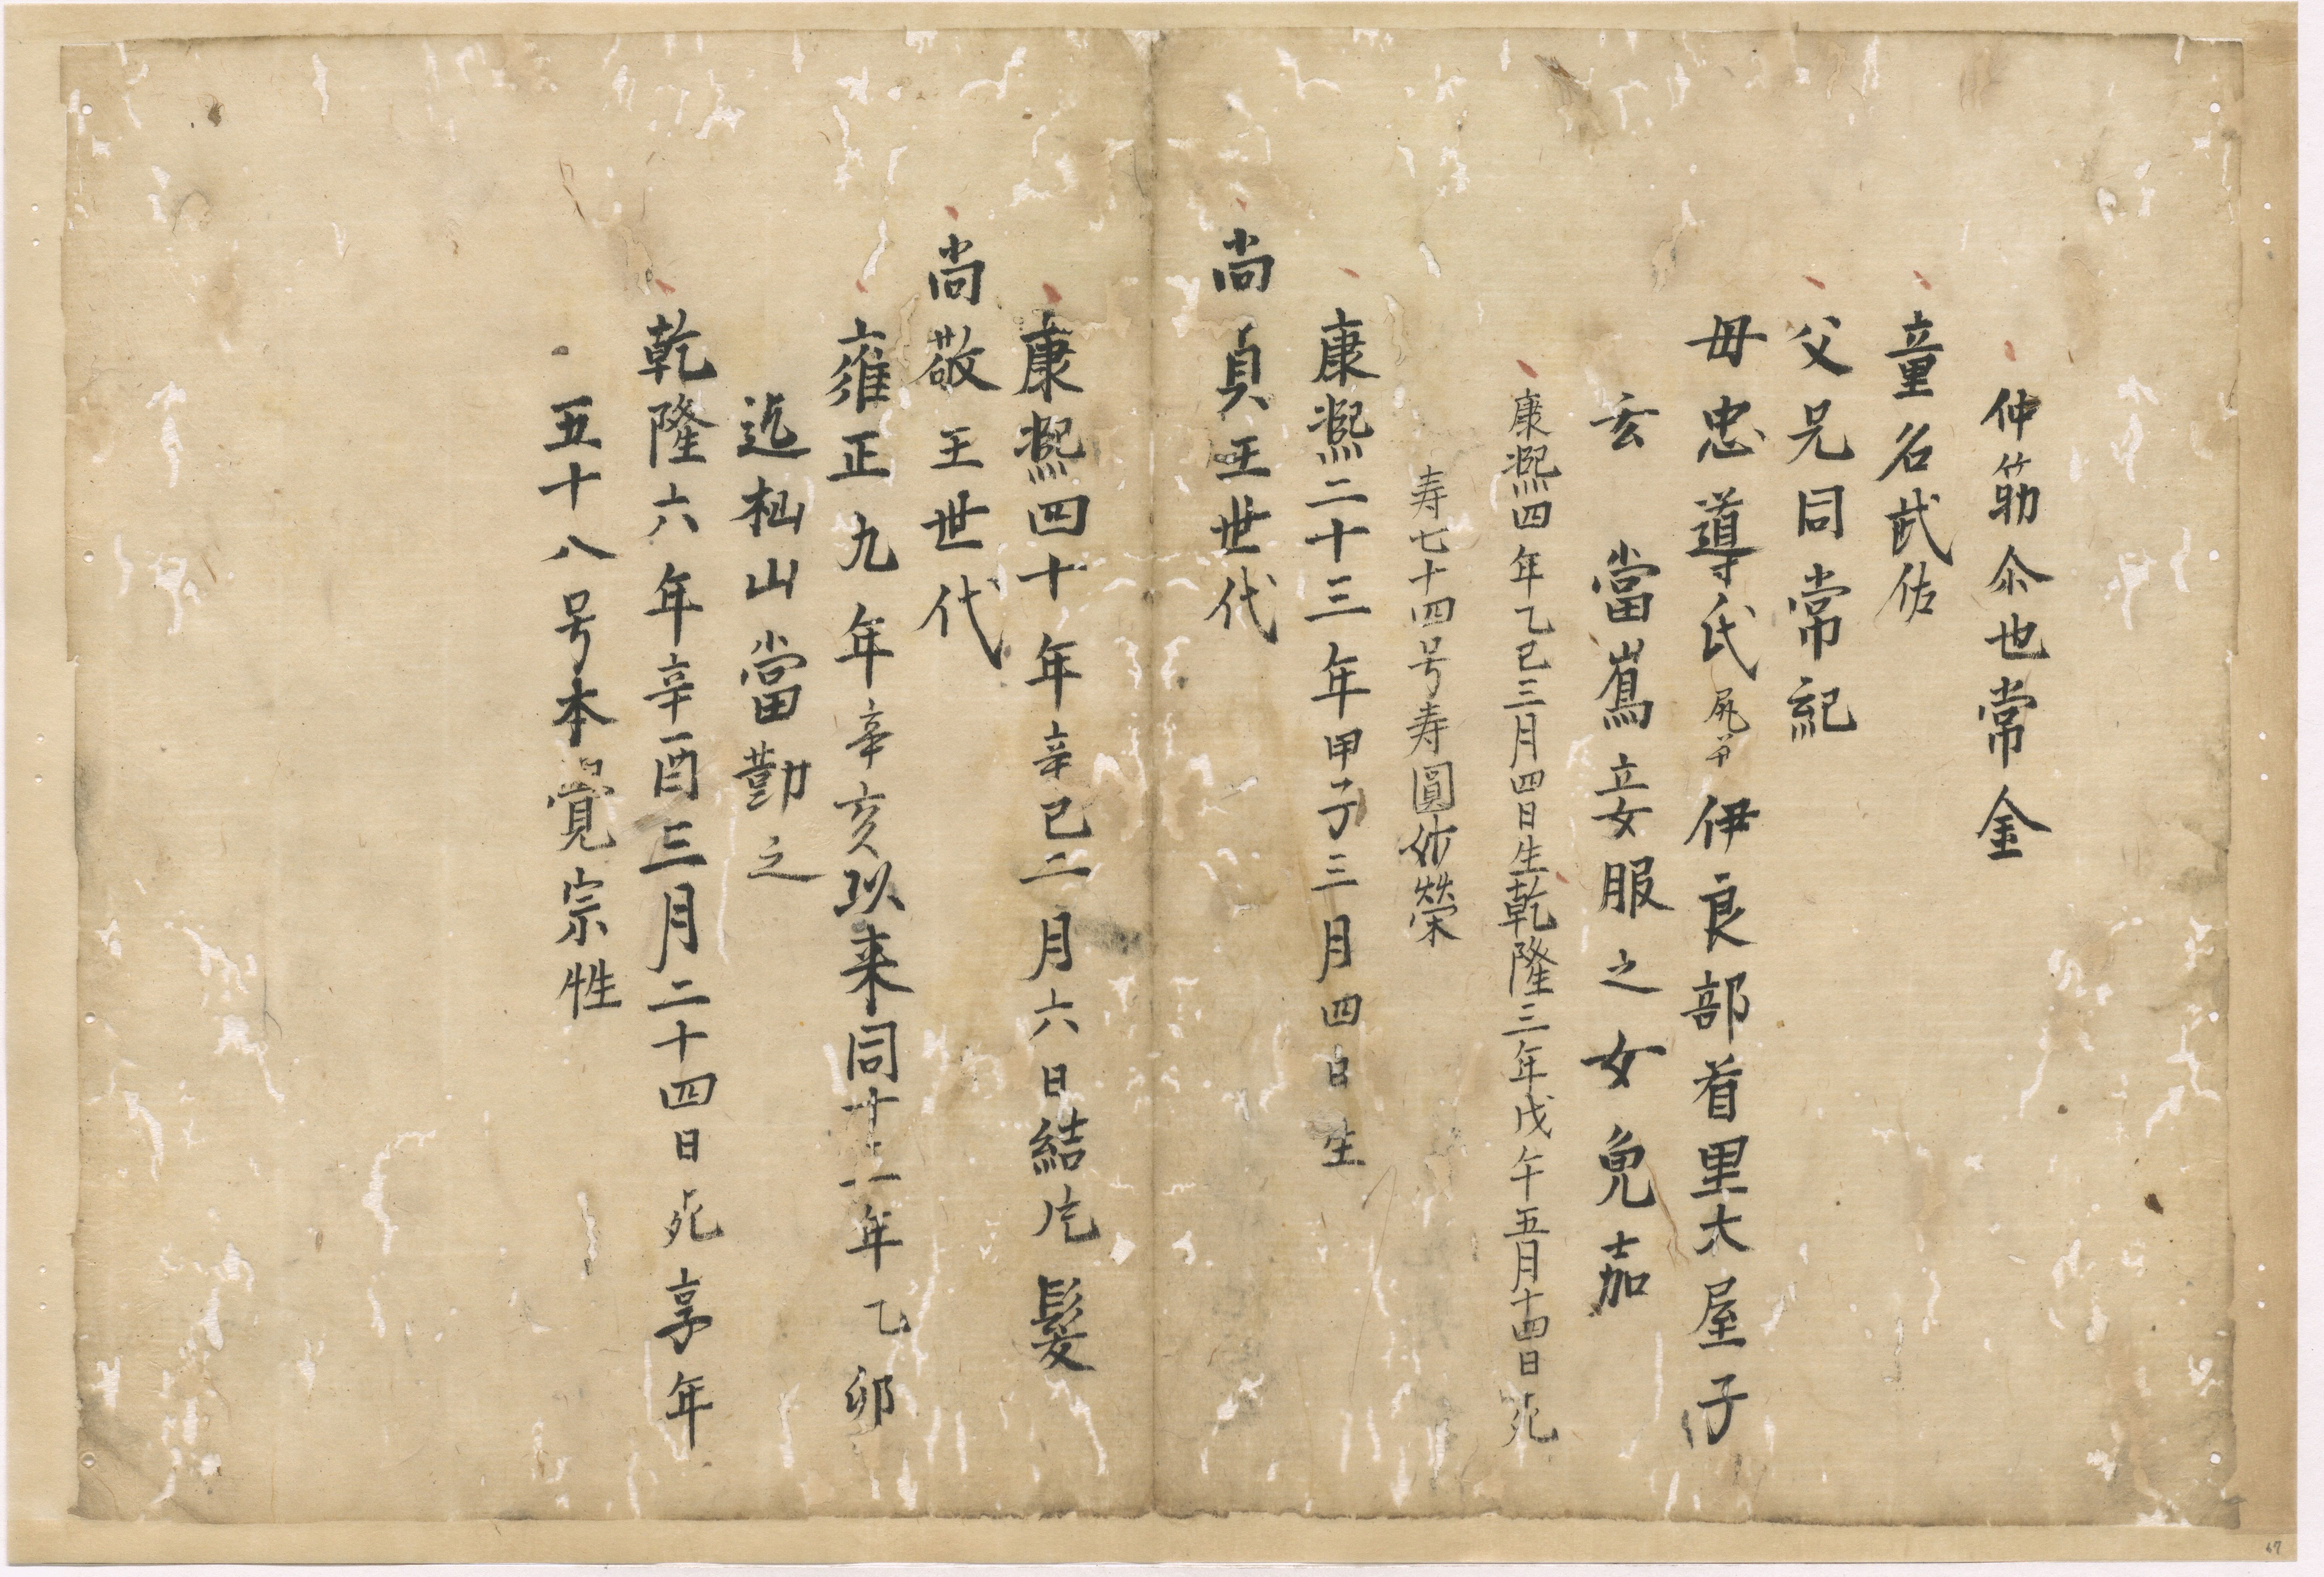 仲筋仁也常金
童名武佐
父兄同常紀
母忠導氏尻並伊良部首里大屋子
玄當嶌立妾服之女免嘉
康熙四年乙巳三月四日生乾隆三年戊午五月十四日死
寿七十四号寿圓妙榮
康熙二十三年甲子三月四日生
尚貞王世代
康熙四十年辛巳二月六日結片髪
尚敬王世代
雍正九年辛亥以来同十三年乙卯
迄杣山當勤之
乾隆六年辛酉三月二十四日死享年
五十八号本覚宗性
67